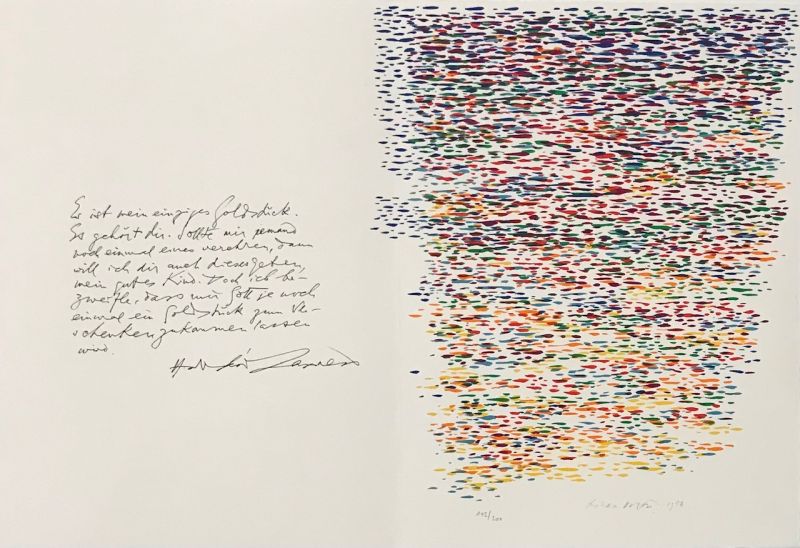 Es ist mein einziges Goldstück.
Es gehört dir. Sollte mir jemand
noch einmal eines verehren, dann
will ich dir auch dieses geben,
mein gutes Kind. Doch ich be-
zweifle, dass mir Gott je noch
einmal ein Goldstück zum Ver-
schenken zukommen lassen
wird.
Halldór Laxness
/200